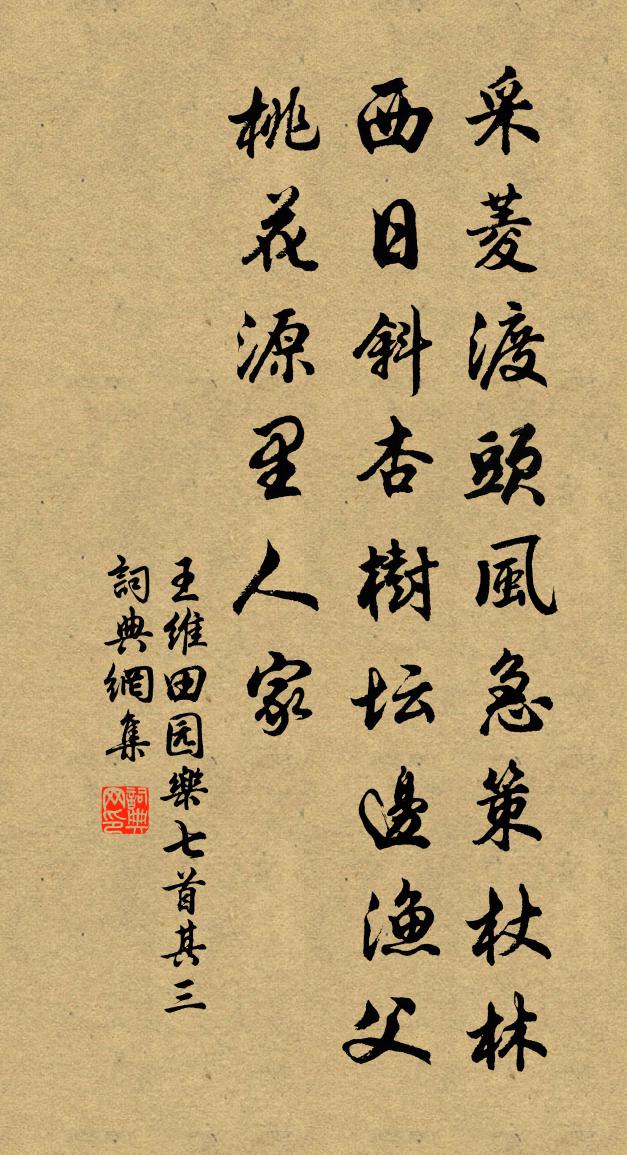 采菱渡頭風急策杖林
西日斜杏樹坛邊漁父
桃花源里人家
王维田园樂七首其三
詞典網集
詞典网印